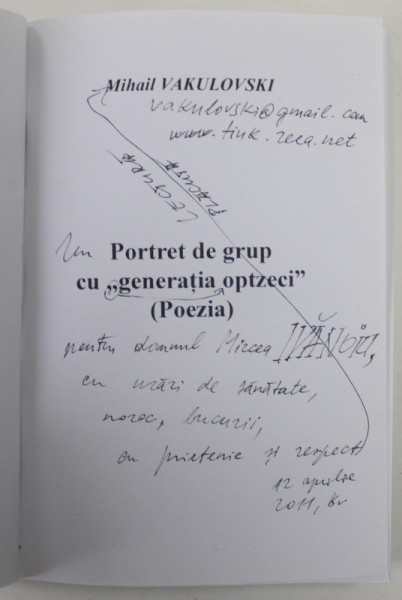 Mihail VAKULOVSKI
vakulovski@gmail.com
www.tiuk.reea.net
LECTURĂ
PLĂCUTĂ
Un Portret de grup
cu „generația optzeci”
(Poezia)
pentru domnul Mircea
cu urări de sănătate,
noroc, bucurii,
cu prietenie și respect
12 aprilie
2011, Bv